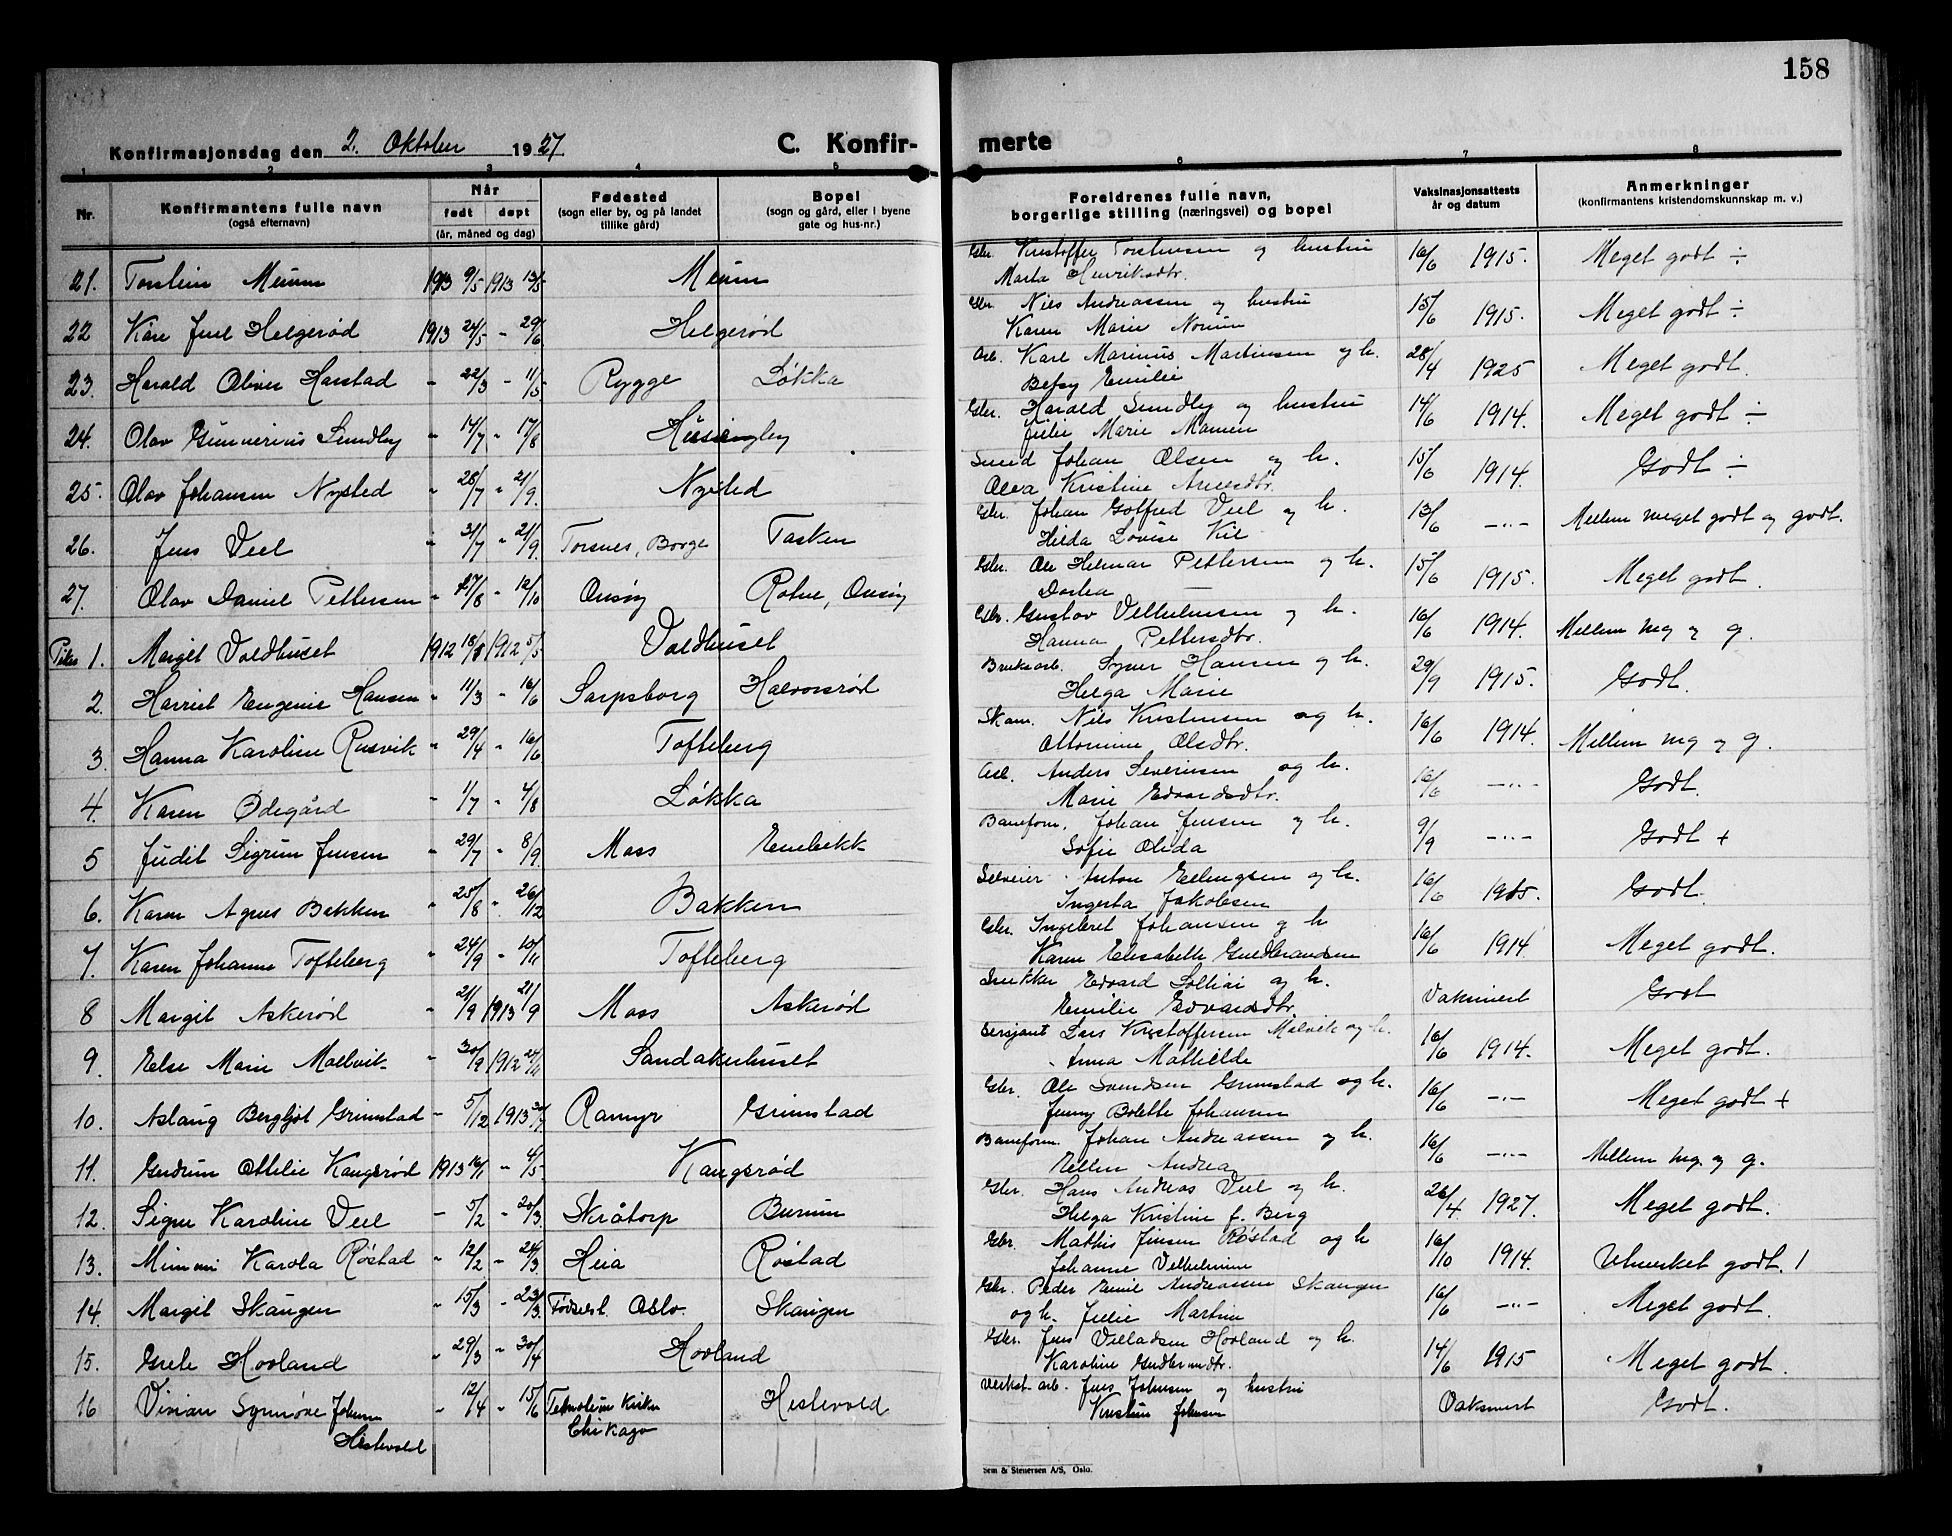 158
Konfirmasjonsdag den 2. Oktober 1927
C. Konfirmerte
1 2 3 4 5 6 7 8
Nr.
Konfirmantens fulle navn
(også efternavn)
Når
født døpt
(år, måned og dag)
Fødested
(sogn eller by, og på landet
tillike gård)
Bopel
(sogn og gård, eller i byene
gate og hus-nr.)
Foreldrenes fulle navn,
borgerlige stilling (næringsvei) og bopel
Vaksinasjonsattests
år og datum
Anmerkninger
(konfirmantens kristendomskunnskap m. v.)
21. Torstein 1913 9/5 1913 13/5 Gbr. Kristoffer Torstensen og hustru 16/6 1915. Meget godt ÷
Marta Henriksdtr.
22 Kåre Juel Helgerød 1913 24/5 - 29/6 Helgerød Gbr. Nils Andreassen og hustru 15/6 1915. Meget godt ÷
Karen Marie Norum
23. Harald Oliver Harstad - 22/3 - 11/5 Rygge Løkka Arb. Karl Marinus Martinsen og h. 28/4 1925 Meget godt.
Betsy Emilie
24. Olav Gunnerius Sundby " 14/7 - 17/8 Gbr. Harald Sundby og hustru 14/6 1914. Meget godt ÷
Julie Marie
25. Olav Johansen Nysted " 28/7 " 21/9. Nysted Smed Johan Olsen og h. 15/6 1914. Godt ÷
Kristine
26. Jens Viel " 31/7 - 21/9. Torsnes, Borge Tasken Gbr. Johan Gotfred Viel og h. 13/6 -"- Mellem meget godt og godt.
Hilda Lovise
27. Olav Daniel Pettersen " 27/8 - 12/10 Onsøy Rotne, Onsøy Gbr. Ole Helmer Pettersen og h. 15/6 1915. Meget godt.
Dortea —
Piker 1. Margit Voldhuset 1912 18/3 1912 5/5 Voldhuset Gbr. Gustav Vilhelmsen og h. 16/6 1914. Mellem mg og g.
Hanna Pettersdtr.
2. Harriet Eugenie Hansen " 11/3 - 16/6 Sarpsborg Halvorsrød Bruksarb. Syver Hansen og h. 29/9 1915. Godt.
Helga Marie
3. Hanna Karoline Rusvik " 29/4 - 16/6 Tofteberg Skom. Nils Kristensen og h. 16/6 1914. Mellem mg og g.
Ottomine Olsdtr.
4. Karen Ødegård - 1/7 - 4/8 Løkka Arb. Anders Severinsen og h. 16/6 -"- Godt.
Marie Edvardsdtr.
5 Judit Sigrun Jensen " 29/7 - 8/9. Moss Enebekk Baneform. Johan Jensen og h. 9/9 -"- Godt +
Sofie Olida
6. Karen Agnes Bakken " 25/8 - 26/12 Bakken Selveier Anton Ellingsen og h. 16/6 1915. Godt.
Ingerta Jakobsen
7. Karen Johanne Tofteberg " 24/9 - 10/11 Tofteberg Gbr. Ingebret Johansen og h 16/6 1914. Meget godt.
Karen Elisabeth Guldbrandsen
8 Margit Askerød - 21/9 1913 21/9 Moss Askerød Snekker Edvard og h. Vaksinert Godt
Emilie Edvardsdtr.
9. Else Marie Mollvik " 30/9 1912 24/11 Sandakerhuset Sersjant Lars Kristoffersen og h. 16/6 1914. Meget godt.
Anna Mathilde
10. Aslaug Bergljot Grimstad - 5/12 1913 Grimstad Gbr. Ole Svendsen Grimstad og h. 16/6 -"- Meget godt +
Jenny Bolette Johansen
11. Gudrun Ottilie Kangsrød 1913 16/1 - 4/5 Kangsrød Baneform. Johan Andreassen og h. 16/6 -"- Mellem mg. og g.
Ellen Andrea
12. Signe Karoline Viel - 5/2 - 20/3 Skråtorp Burum Gbr. Hans Andreas Viel og h. 26/4. 1927. Meget godt.
Helga Kristine f. Berg
13. Mimmi Karola Røstad " 12/2 - 24/3 Heia Røstad Gbr. Mathis Jensen Røstad og h 16/10 1914. Utmerket godt. !
Johanne Vilhelmine
14. Margit Skaugen " 15/3 - 23/3 Fødselst. Oslo. Skaugen Gbr. Peder Emil Andreassen Skaugen 16/6 -"- Meget godt.
og h. Julie Martine
15. Grete Hovland " 29/3 - 30/4 Hovland Gbr. Jens Villadsen Hovland og h. 14/6 1915 Meget godt.
Karoline Gudbrandtr.
16 Vivian Synnøve Johnsen " 12/4 - 15/6 Kirke Hestevold Verkst. arb. Jens Johnsen og hustru Vaksinert Godt.
Hestevold Chikago Kristine Johnsen
Sem & Stenersen A/S, Oslo.